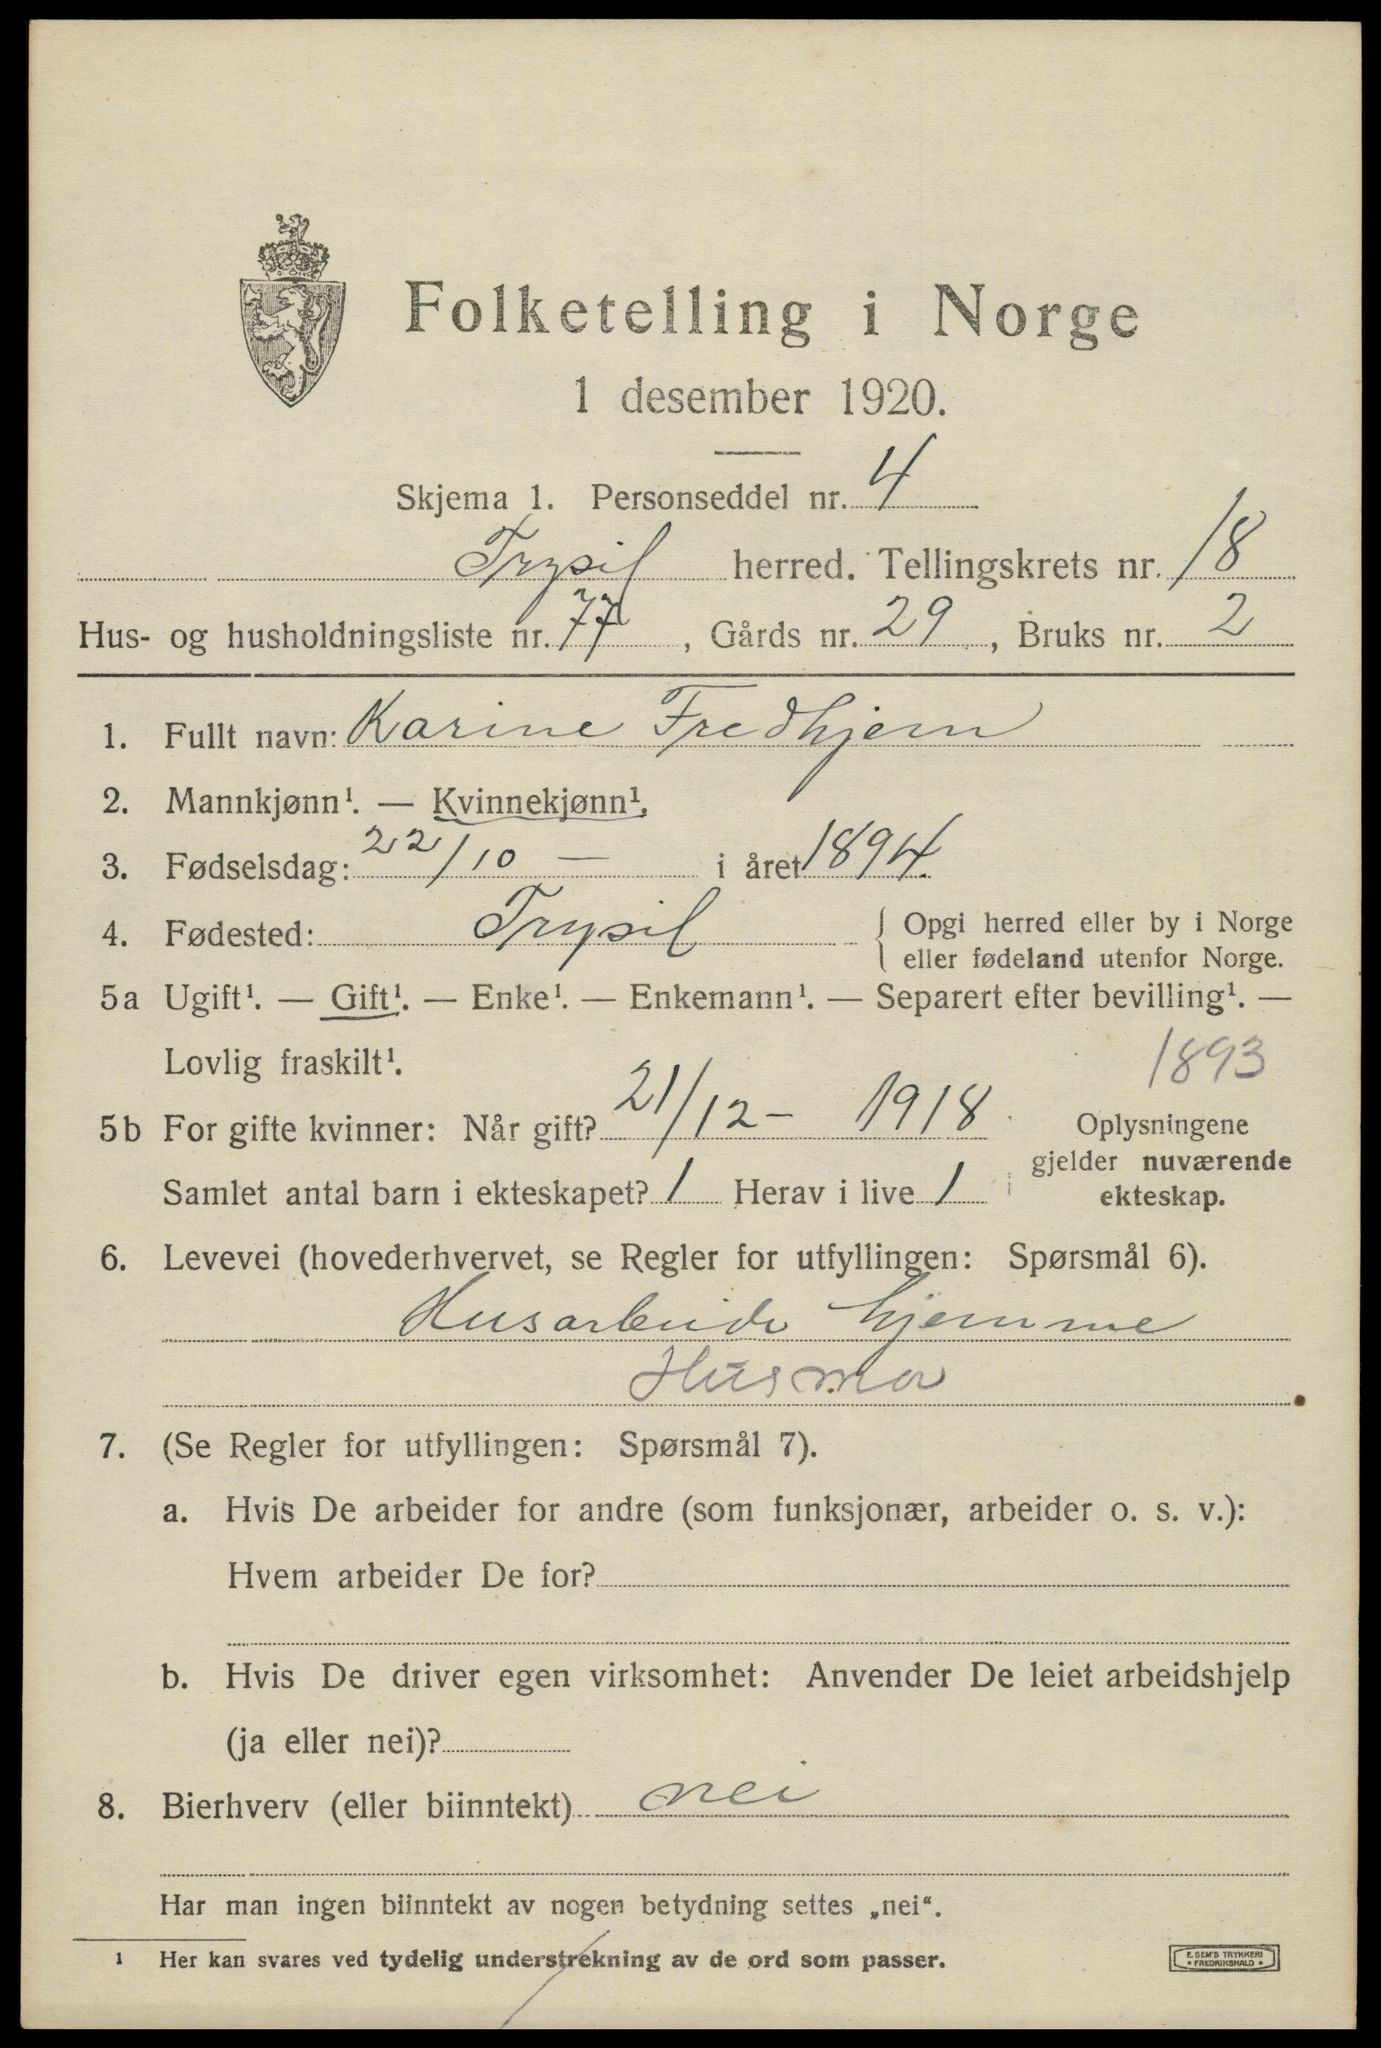 Folketelling i Norge
1 desember 1920.
Skjema 1. Personseddel nr. 4
Trysil herred. Tellingskrets nr. 18
Hus- og husholdningsliste nr. 77, Gårds nr. 29, Bruks nr. 2
1. Fullt navn: Karine Fredhjem
2. Mannkjønn¹. — Kvinnekjønn¹.
3. Fødselsdag: 22/10 — i året 1894.
4. Fødested: Trysil { Opgi herred eller by i Norge
eller fødeland utenfor Norge.
5a Ugift¹. — Gift¹. — Enke¹. — Enkemann¹. — Separert efter bevilling¹. —
Lovlig fraskilt¹.
1893
5b For gifte kvinner: Når gift? 21/12 – 1918
Samlet antal barn i ekteskapet? 1 Herav i live 1
Oplysningene
gjelder nuværende
ekteskap.
6. Levevei (hovederhvervet, se Regler for utfyllingen: Spørsmål 6).
Husarbeide hjemme
Husmor
7. (Se Regler for utfyllingen: Spørsmål 7).
a. Hvis De arbeider for andre (som funksjonær, arbeider o. s. v.):
Hvem arbeider De for?
b. Hvis De driver egen virksomhet: Anvender De leiet arbeidshjelp
(ja eller nei)?
8. Bierhverv (eller biinntekt) nei
Har man ingen biinntekt av nogen betydning settes „nei“.
¹ Her kan svares ved tydelig understrekning av de ord som passer.
E. SEM'S TRYKKERI
* FREDRIKSHALD *